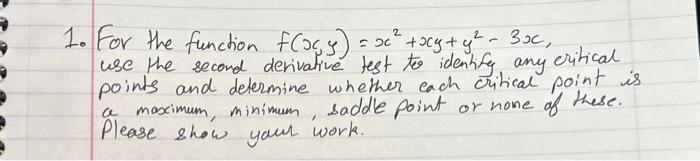 1. For the function f(x,y) = x² + xy + y² - 3x,
use the second derivative test to identify any critical
points and determine whether each critical point is
a maximum, minimum, saddle point or none of these.
Please show your work.